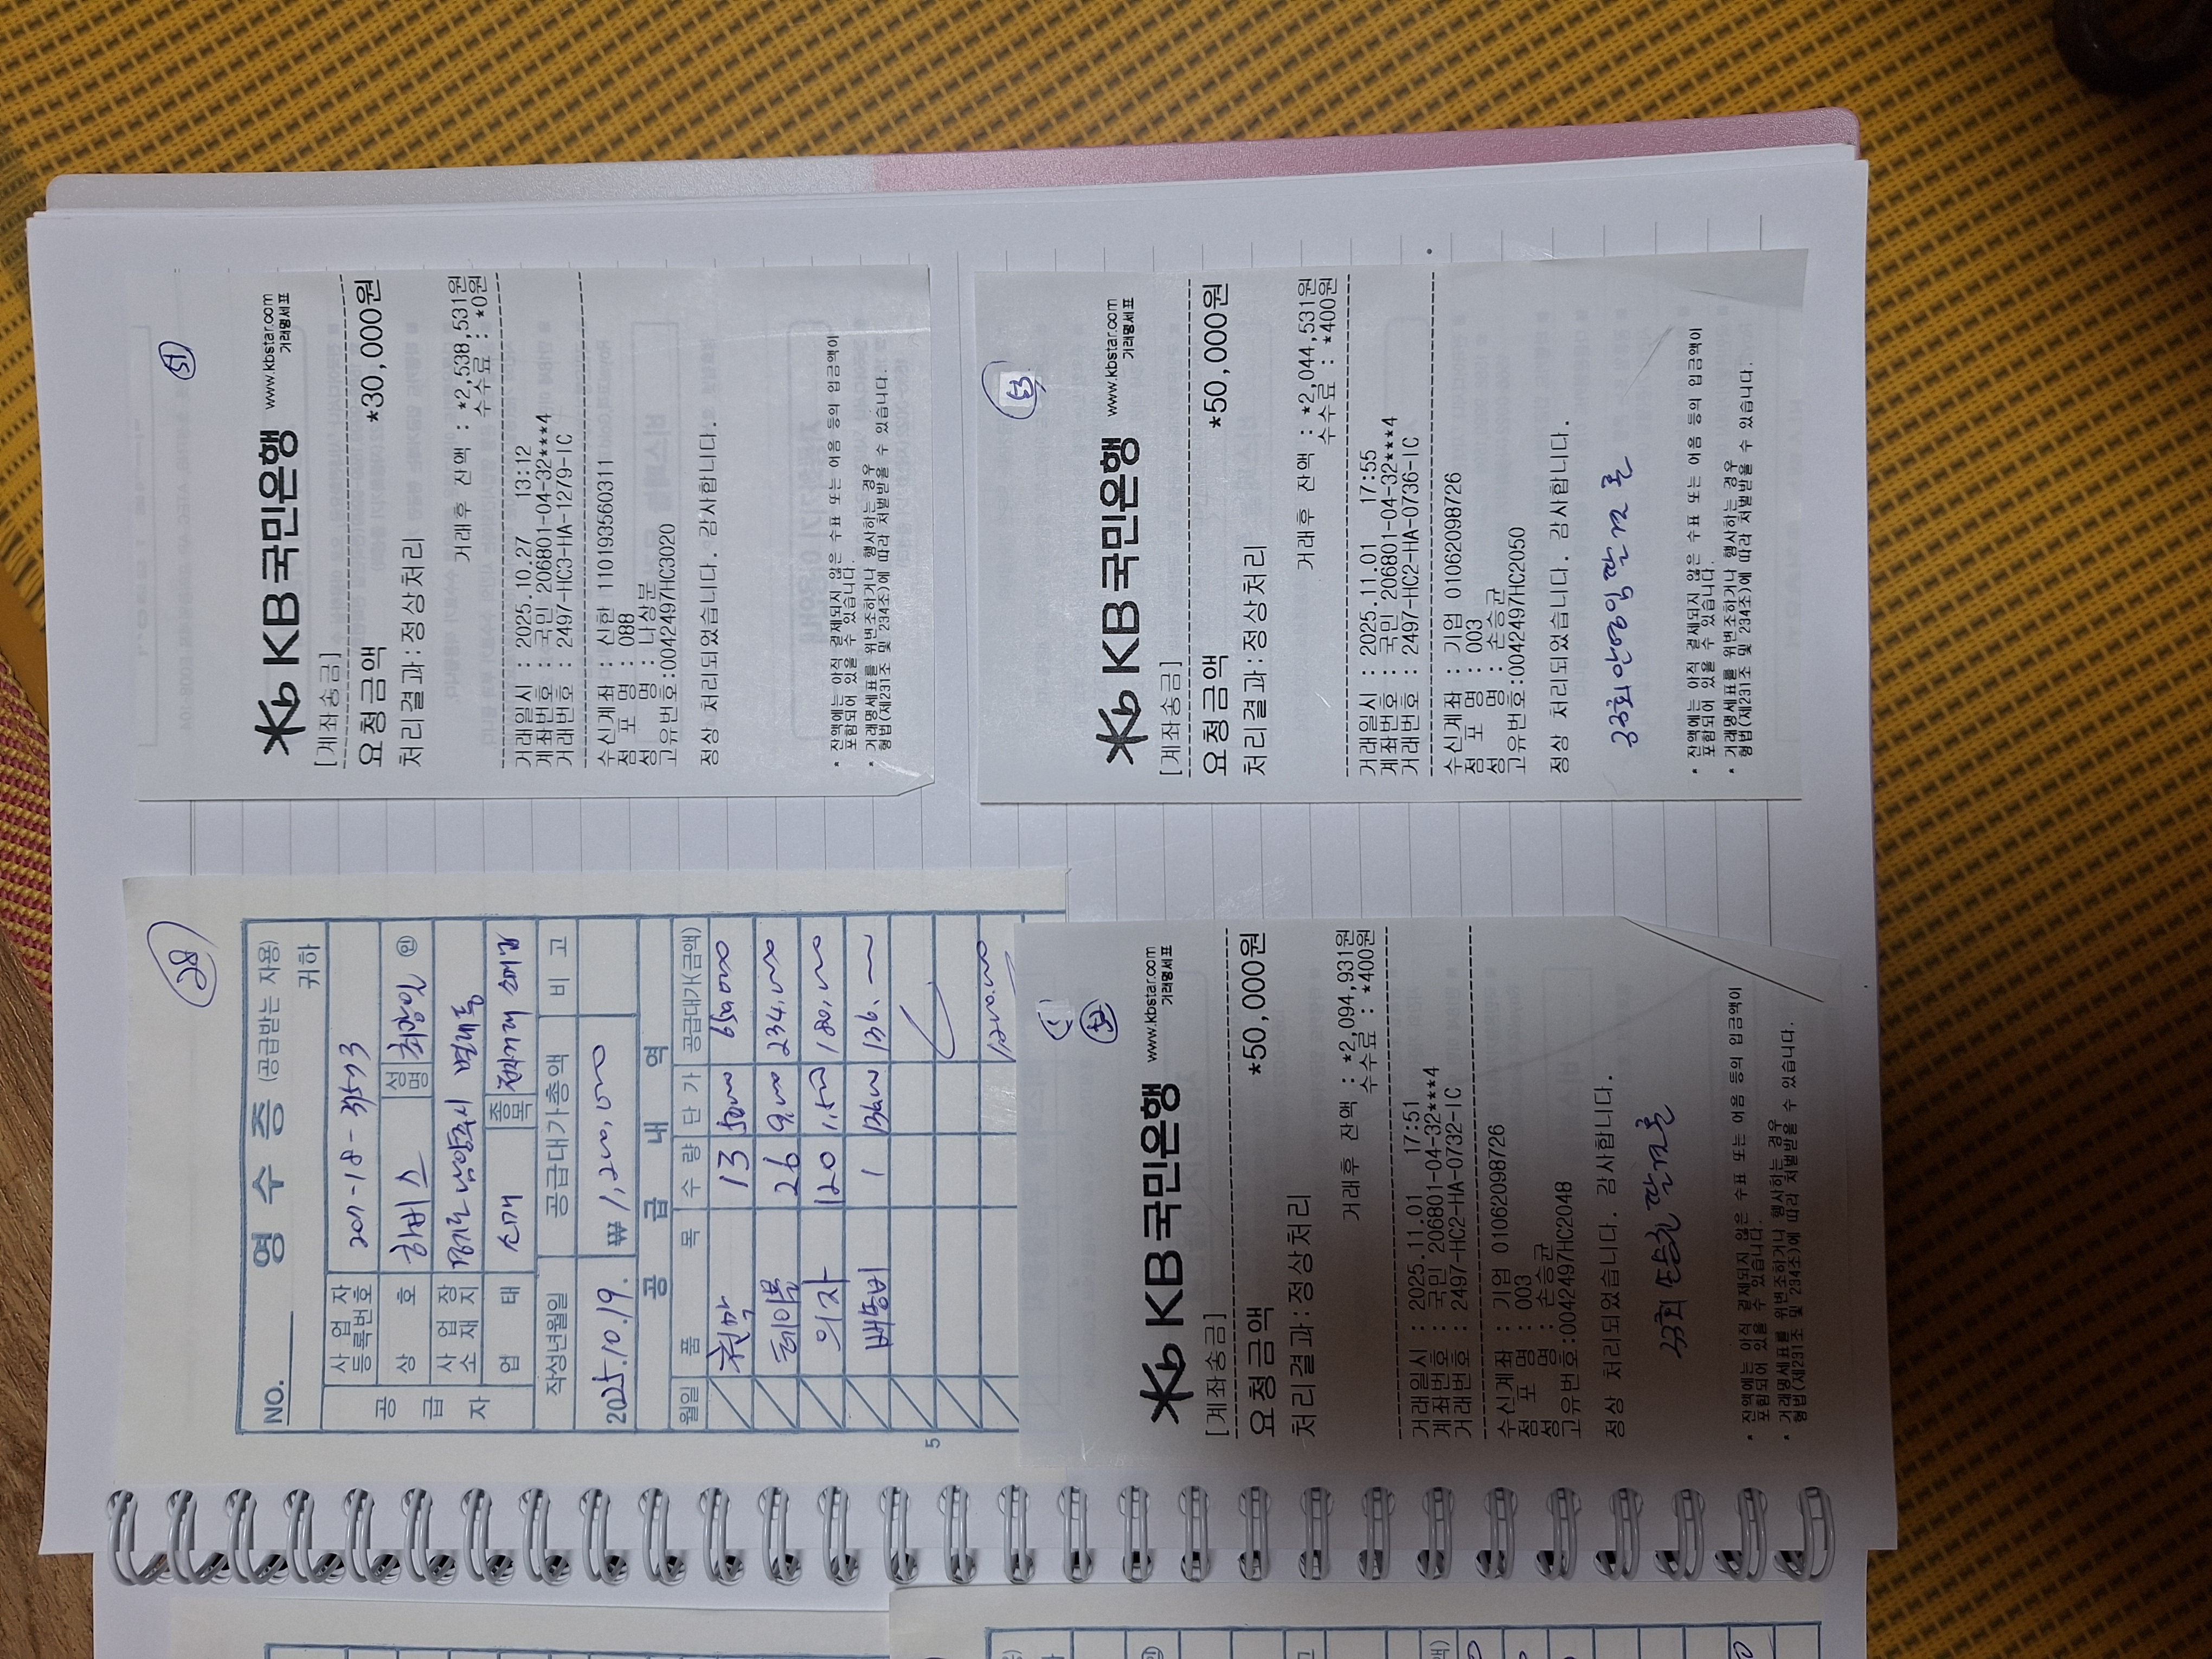 28
NO.
영 수 증 (공급받는 자용)
귀하
공 급 자
사 업 자 등록번호 201-18-31573
상 호 하비스 성명 최광일 ㊞
사 업 장 소 재 지 경기도 남양주시 별내동
업 태 소매 종목 전자기계 소매업
작성년월일 공급대가총액 비 고
2025.10.19. ₩ 1,200,000
공 급 내 역
월일 품 목 수 량 단 가 공급대가(금액)
천막 13 50000 650,000
테이블 26 9,000 234,000
의자 120 1,500 180,000
배송비 1 136000 136,—
1,200,000
5
51
KB국민은행 www.kbstar.com
거래명세표
[계좌송금]
요청금액 *30,000원
처리결과:정상처리
거래후 잔액 : *2,538,531원
수수료 : *0원
거래일시 : 2025.10.27 13:12
계좌번호 : 국민 206801-04-32***4
거래번호 : 2497-HC3-HA-1279-IC
수신계좌 : 신한 110193560311
점 포 명 : 088
성 명 : 나상문
고유번호:0042497HC3020
정상 처리되었습니다. 감사합니다.
* 잔액에는 아직 결제되지 않은 수표 또는 어음 등의 입금액이
포함되어 있을 수 있습니다.
* 거래명세표를 위변조하거나 행사하는 경우
형법(제231조 및 234조)에 따라 처벌받을 수 있습니다.
52
KB국민은행 www.kbstar.com
거래명세표
[계좌송금]
요청금액 *50,000원
처리결과:정상처리
거래후 잔액 : *2,094,931원
수수료 : *400원
거래일시 : 2025.11.01 17:51
계좌번호 : 국민 206801-04-32***4
거래번호 : 2497-HC2-HA-0732-IC
수신계좌 : 기업 01062098726
점 포 명 : 003
성 명 : 손승균
고유번호:0042497HC2048
정상 처리되었습니다. 감사합니다.
33회 손승균 딸결혼
* 잔액에는 아직 결제되지 않은 수표 또는 어음 등의 입금액이
포함되어 있을 수 있습니다.
* 거래명세표를 위변조하거나 행사하는 경우
형법(제231조 및 234조)에 따라 처벌받을 수 있습니다.
53
KB국민은행 www.kbstar.com
거래명세표
[계좌송금]
요청금액 *50,000원
처리결과:정상처리
거래후 잔액 : *2,044,531원
수수료 : *400원
거래일시 : 2025.11.01 17:55
계좌번호 : 국민 206801-04-32***4
거래번호 : 2497-HC2-HA-0736-IC
수신계좌 : 기업 01062098726
점 포 명 : 003
성 명 : 손승균
고유번호:0042497HC2050
정상 처리되었습니다. 감사합니다.
33회 안영임 딸결혼
* 잔액에는 아직 결제되지 않은 수표 또는 어음 등의 입금액이
포함되어 있을 수 있습니다.
* 거래명세표를 위변조하거나 행사하는 경우
형법(제231조 및 234조)에 따라 처벌받을 수 있습니다.